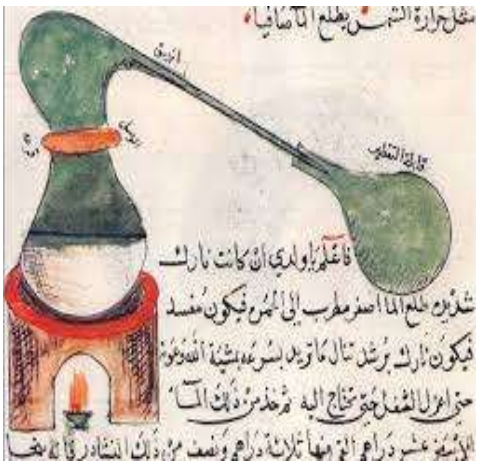 مثل حرارة الشمس يطلع الما صافيا
انبيق
قابلة التقطير
فاعلم يا ولدي ان كانت نارك
شديدة طلع الما اصفر مطرب الى الحمرة فيكون مفسد
فيكون نارك برشد تنال ما تريد بسرعة بمشية الله وعونه
حتى اعزل الثفل حتى تحتاج اليه ثم خذ من ذلك الما
عشر دراهم ثلاثة دراهم ونصف من ذلك النشادر